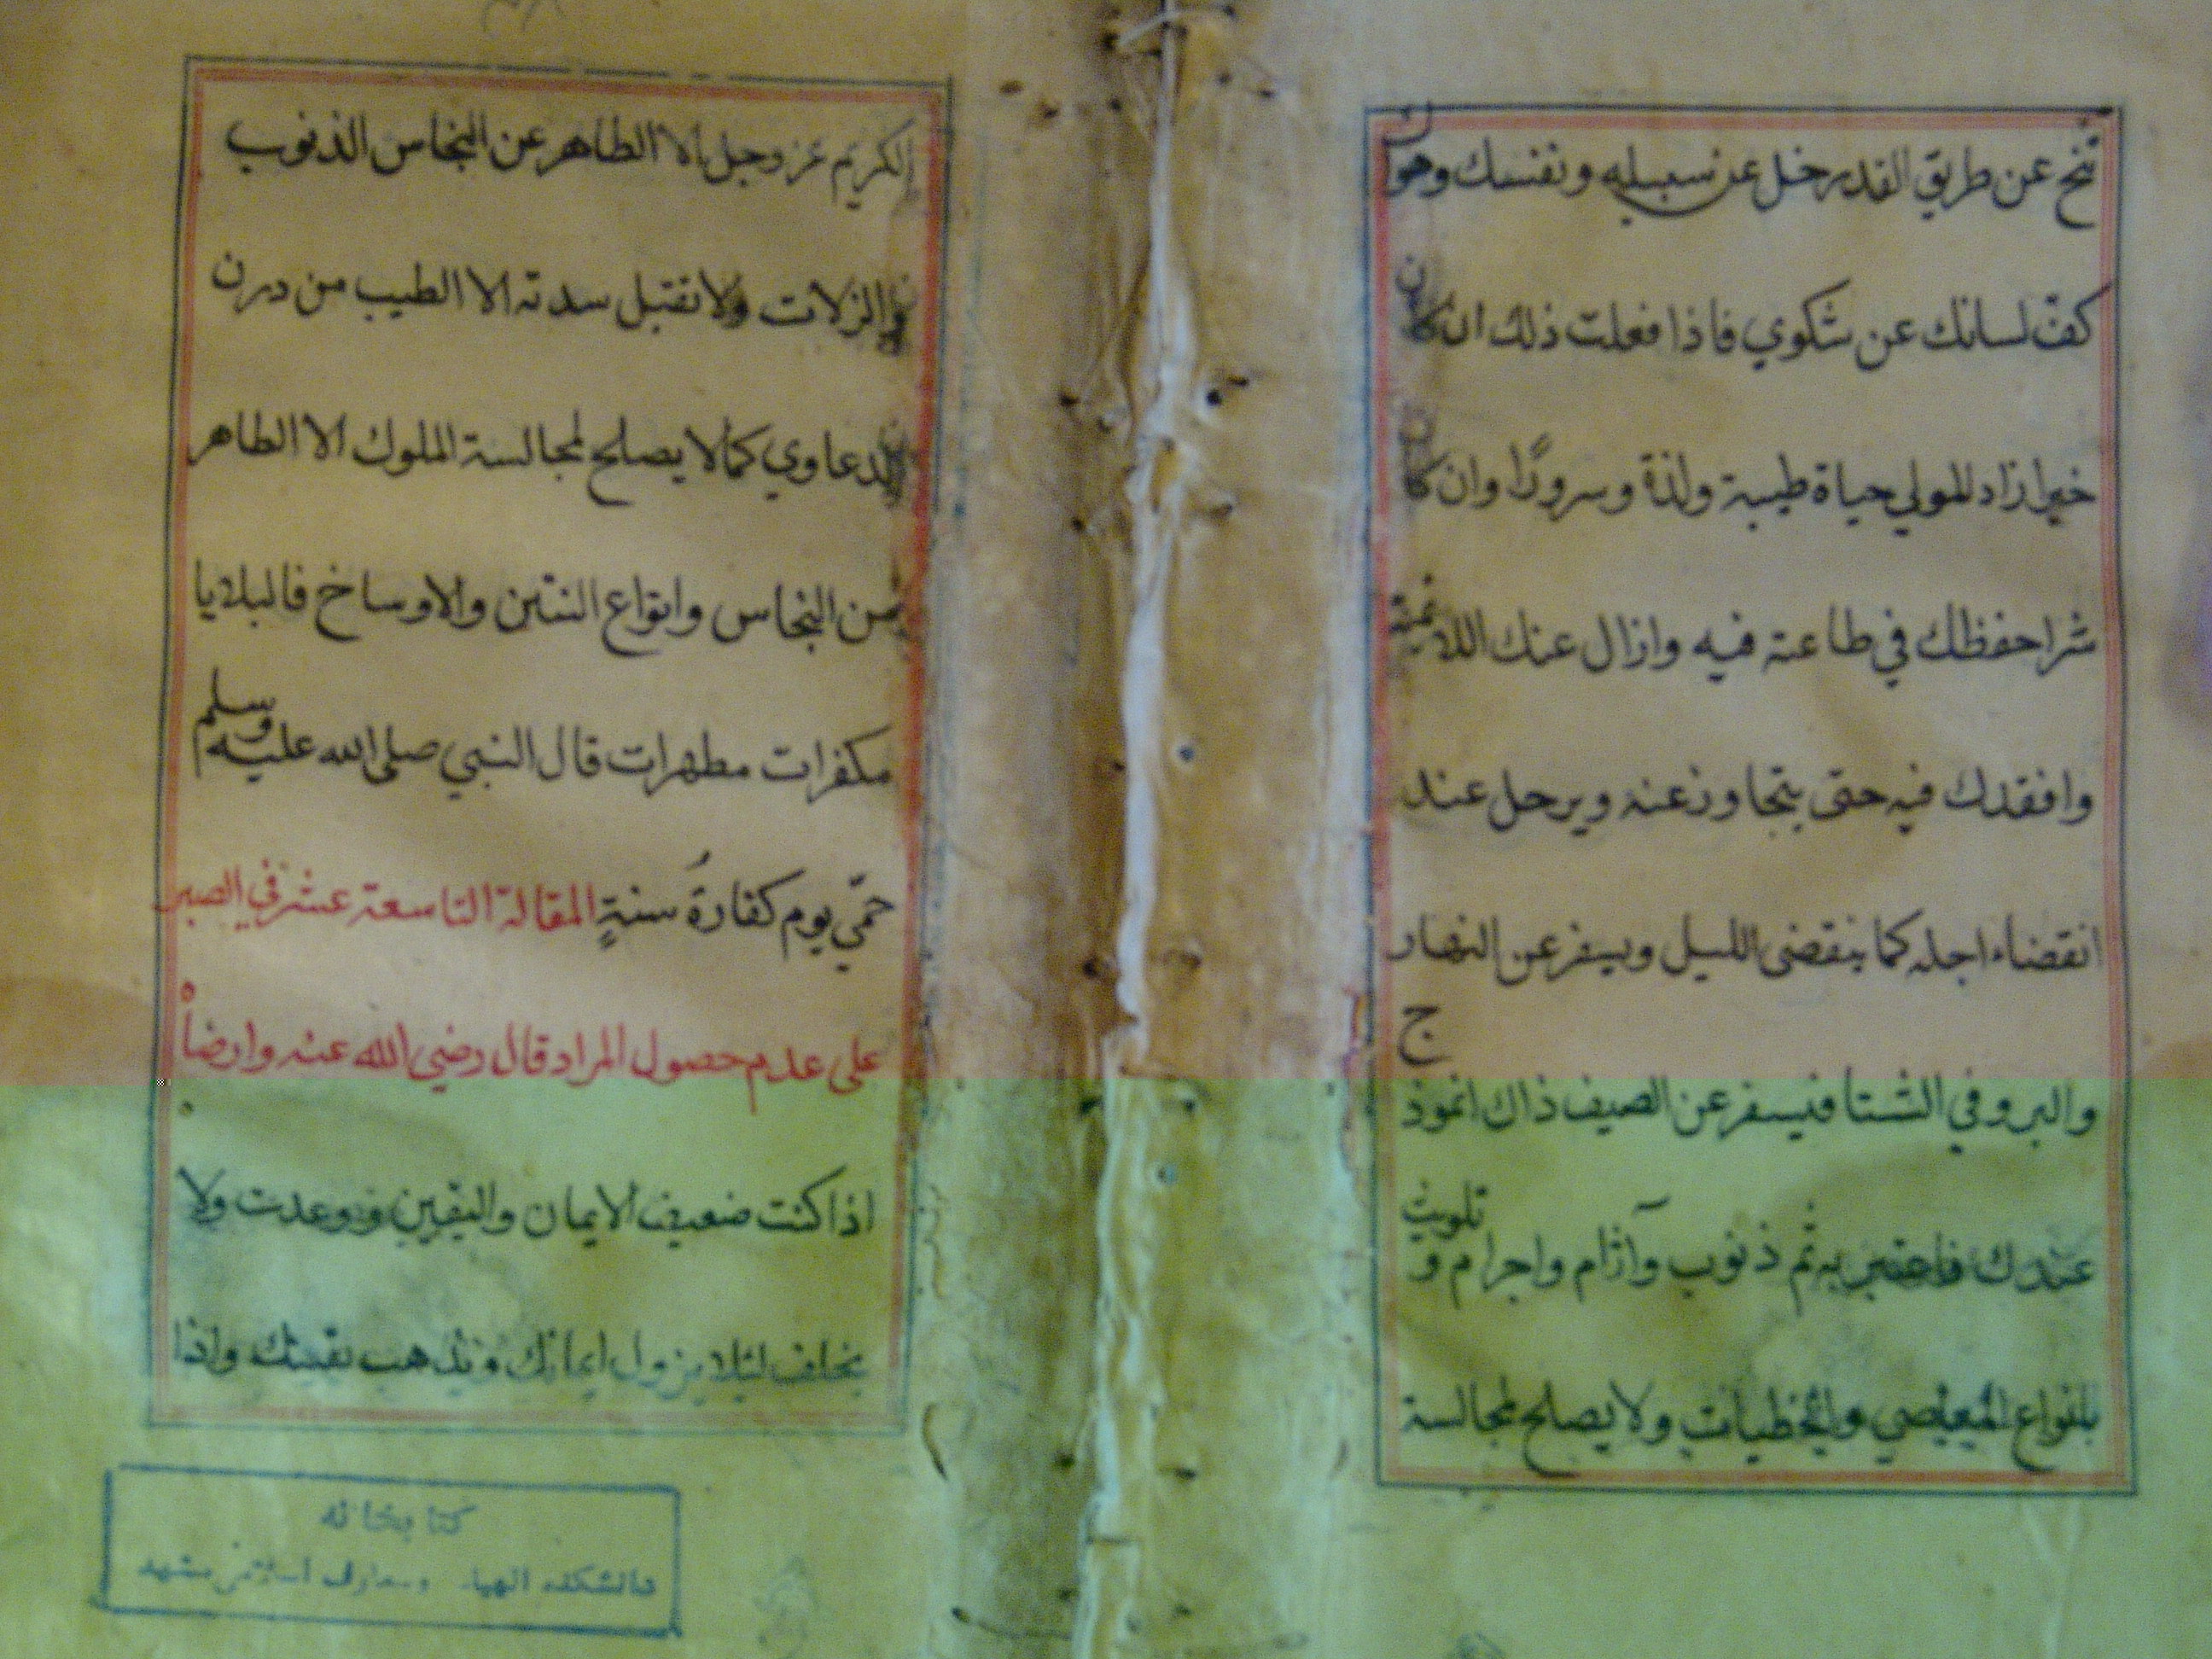 تنح عن طريق القدر خل عن سبيله ونفسك وهواك
كف لسانك عن شكوي فاذا فعلت ذلك ان كان
خيرا زاد المولي حياة طيبة ولذة وسرورًا وان كان
شرا حفظك في طاعته فيه وازال عنك اللائمة
وافقدك فيه حتى يتجاوز عنه ويرحل عند
انقضاء اجله كما ينقضى الليل ويسفر عن النهار
والبرد في الشتا فيسفر عن الصيف ذاك انموذج
عندك فاعتبر به ثم ذنوب وآثام واجرام و تلويث
بانواع المعاصي والخطيات ولا يصلح لمجالسة
الكريم عز وجل الا الطاهر عن النجاس الذنوب
والزلات ولا تقبل سدته الا الطيب من درن
الدعاوي كما لا يصلح لمجالسة الملوك الا الطاهر
من النجاس وانواع النتن والاوساخ فالبلايا
مكفرات مطهرات قال النبي صلى الله عليه وسلم
حمّي يوم كفارةُ سنةٍ المقالة التاسعة عشر في الصبر
على عدم حصول المراد قال رضي الله عنه وارضاه
اذا كنت ضعيف الايمان واليقين ووعدت ولا
يخلف لئلا يزول ايمانك ويذهب يقينك واذا
كتابخانه
دانشكده الهيات ومعارف اسلامي مشهد